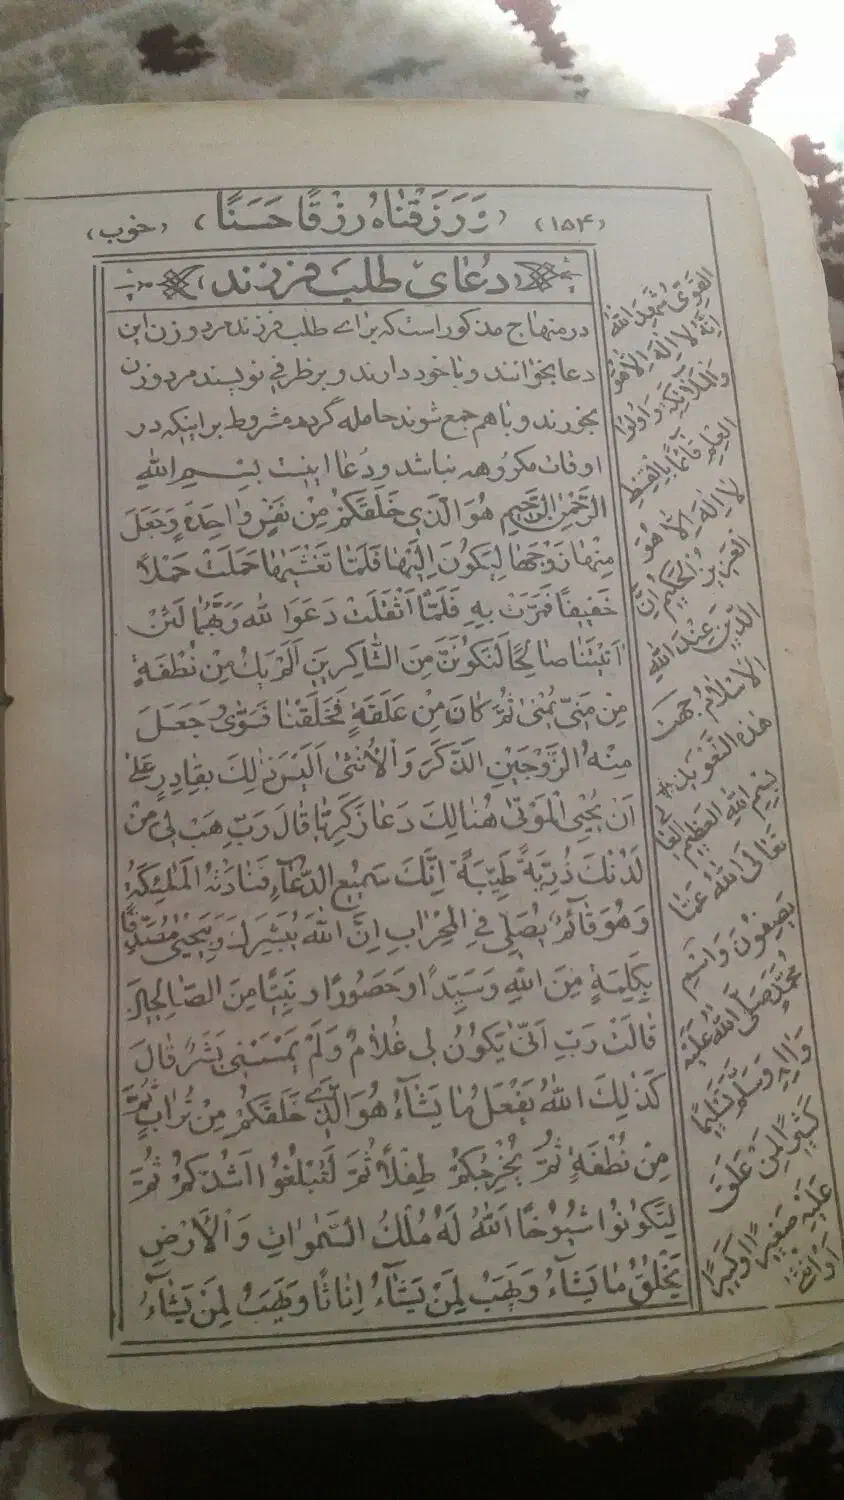 (۱۵۴) (وَرَزَقْنَاهُ رِزْقًا حَسَنًا) (خوب)
(دُعَای طلب فرزند)
در منهاج مذکور است که برای طلب فرزند مرد و زن این
دعا بخوانند و با خود دارند و بر ظرفی نویسند مرد و زن
بخورند و با هم جمع شوند حامله گردد مشروط بر اینکه در
اوقات مکروهه نباشد و دُعا اینست بِسْمِ اللهِ
الرَّحْمٰنِ الرَّحِیمِ هُوَ الَّذِی خَلَقَکُمْ مِنْ نَفْسٍ وٰاحِدَةٍ وَجَعَلَ
مِنْهٰا زَوْجَهٰا لِیَکُونَ اِلَیْهٰا فَلَمّٰا تَغَشّٰیهٰا حَمَلَتْ حَمْلاً
خَفِیفاً فَمَرَّتْ بِهِ فَلَمّٰا اَثْقَلَتْ دَعَوَا لله رَبَّهُمٰا لَئِنْ
اٰتَیْتَنٰا صٰالِحًا لَنَکُونَنَّ مِنَ الشّٰاکِرِینَ اَلَمْ یَكُ مِنْ نُطْفَةٍ
مِن مَنِیٍّ یُمْنٰی ثُمَّ کٰانَ مِنْ عَلَقَةٍ فَخَلَقْنٰا فَسَوّٰی وَجَعَلَ
مِنْهُ الزَّوْجَیْنِ الذَّکَرَ وَالْاُنْثٰی اَلَیْسَ ذٰلِكَ بِقٰادِرٍ عَلٰی
اَنْ یُحْیِیَ الْمَوْتٰی هُنٰالِكَ دَعٰا زَکَرِیّٰا قٰالَ رَبِّ هَبْ لِی مِنْ
لَدُنْكَ ذُرِّیَةً طَیِّبَةً اِنَّكَ سَمِیعُ الدُّعٰاءِ فَنٰادَتْهُ الْمَلٰئِکَةُ
وَهُوَ قٰائِمٌ یُصَلِّی فِی الْمِحْرٰابِ اِنَّ اللهَ یُبَشِّرُكَ بِیَحْیٰی مُصَدِّقًا
بِکَلِمَةٍ مِنَ اللهِ وَسَیِّدًا وَحَصُورًا وَ نَبِیًّا مِنَ الصّٰالِحِینَ
قٰالَتْ رَبِّ اَنّٰی یَکُونُ لِی غُلٰامٌ وَلَمْ یَمْسَسْنِی بَشَرٌ قٰالَ
کَذٰلِكَ اللهُ یَفْعَلُ مٰا یَشٰاءُ هُوَ الَّذِی خَلَقَکُمْ مِنْ تُرٰابٍ ثُمَّ
مِنْ نُطْفَةٍ ثُمَّ یُخْرِجُکُمْ طِفْلاً ثُمَّ لِتَبْلُغُوا اَشُدَّکُمْ ثُمَّ
لِتَکُونُوا شُیُوخًا اَللهُ لَهُ مُلْكُ السَّمٰوٰاتِ وَالْاَرْضِ
یَخْلُقُ مٰا یَشٰاءُ وَیَهَبُ لِمَنْ یَشٰاءُ اِنٰاثًا وَیَهَبُ لِمَنْ یَشٰاءُ
القوی شَهِدَ اللهُ
اَنَّهُ لٰا اِلٰهَ اِلّٰا هُوَ
وَالْمَلٰائِکَةُ وَ اُولُوا
الْعِلْمِ قٰائِمًا بِالْقِسْطِ
لٰا اِلٰهَ اِلّٰا هُوَ
الْعَزِیزُ الْحَکِیمُ اِنَّ
الدِّینَ عِنْدَ اللهِ
الْاِسْلٰامُ جهت
هٰذِهِ التَّعْوِیذ
بِسْمِ اللهِ الْعَظِیمِ
تَعٰالَی اللهُ عَمّٰا
یَصِفُونَ وَاسْمِ
مُحَمَّدٍ صَلَّی اللهُ عَلَیْهِ
وَاٰلِهِ وَسَلَّمَ تَسْلِیمًا
کَثِیرًا لِمَنْ عَلَّقَ
عَلَیْهِ صَغِیرًا اَوْ کَبِیرًا